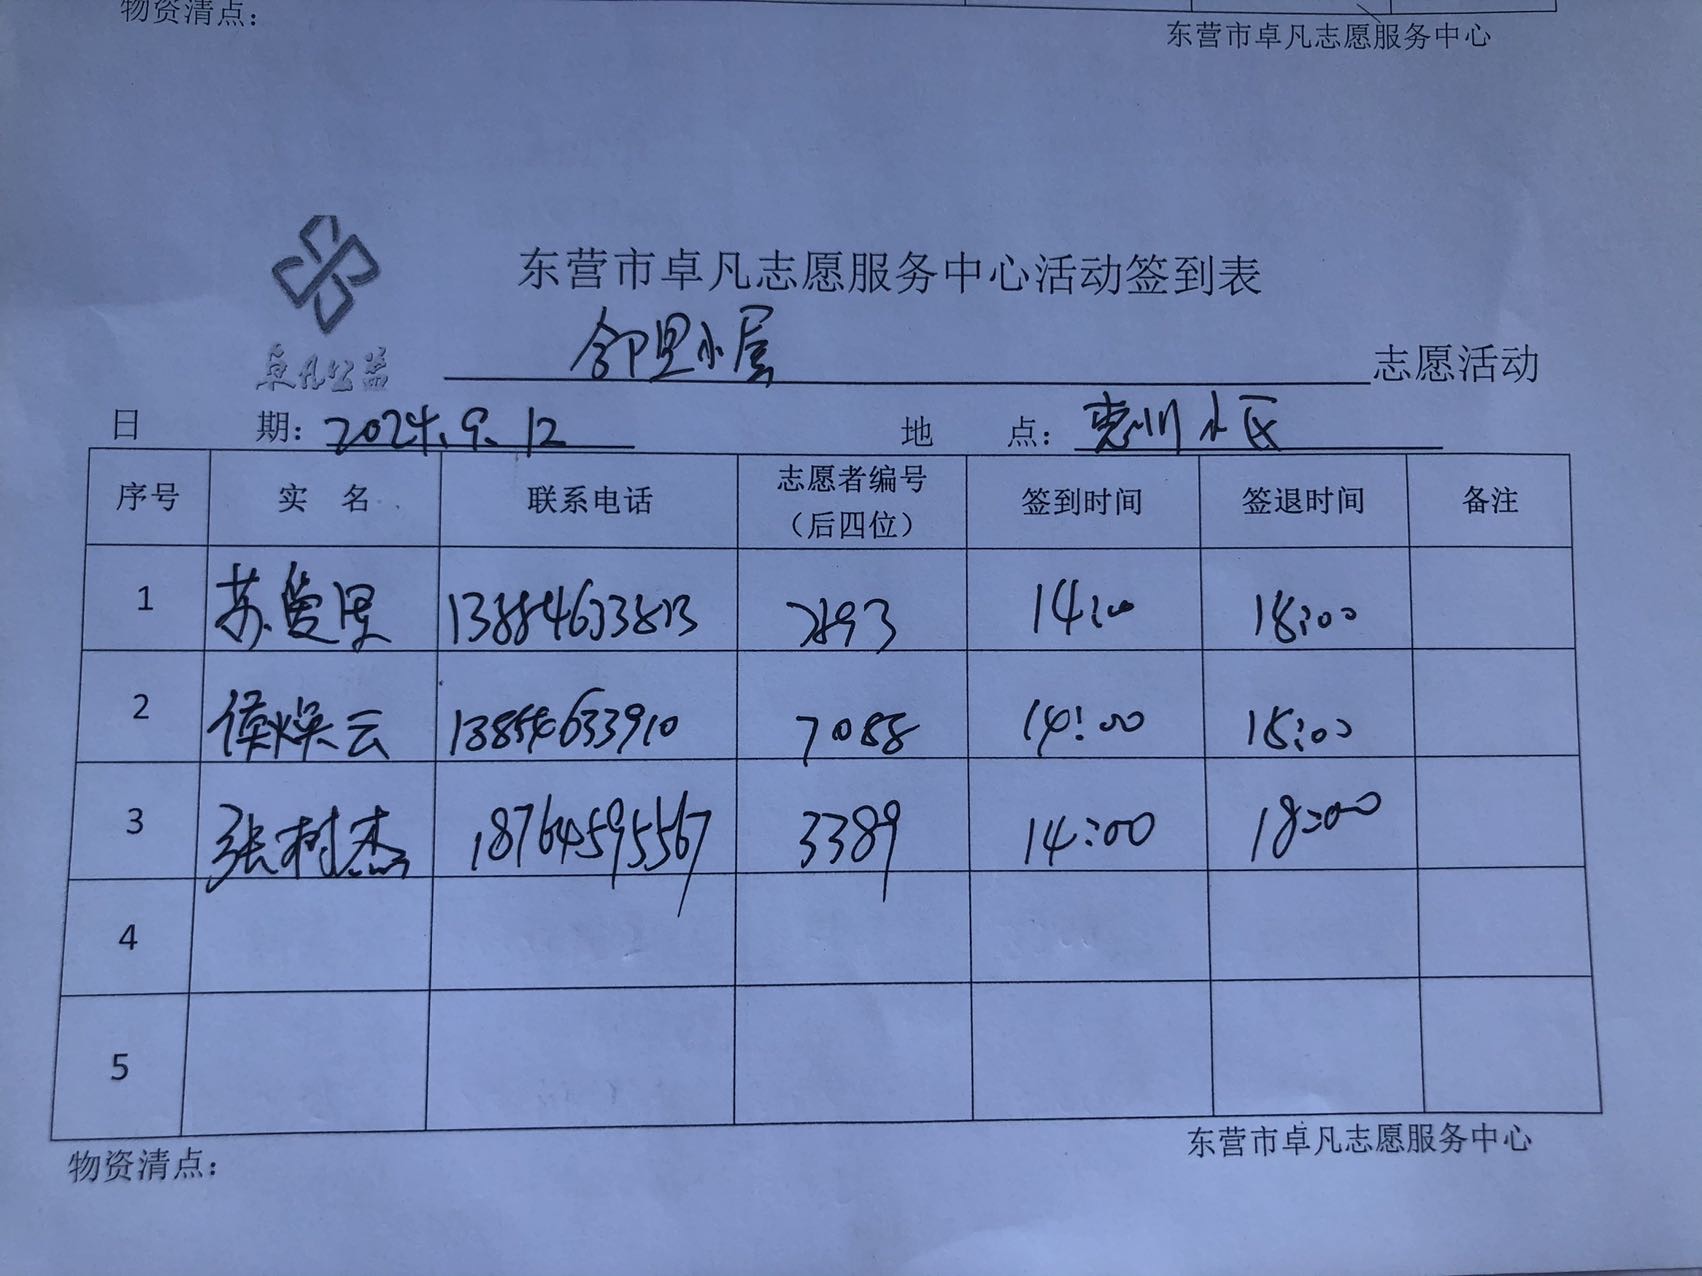 物资清点：
东营市卓凡志愿服务中心
东营市卓凡志愿服务中心活动签到表
卓凡公益
邻里小屋 志愿活动
日 期：2024.9.12 地 点：惠州小区
序号 实 名 联系电话 志愿者编号（后四位） 签到时间 签退时间 备注
1 苏 13884633813 14:00 18:00
2 侯焕云 13854633910 7088 14:00 18:00
3 张树杰 18764595567 3389 14:00 18:00
4
5
物资清点：
东营市卓凡志愿服务中心